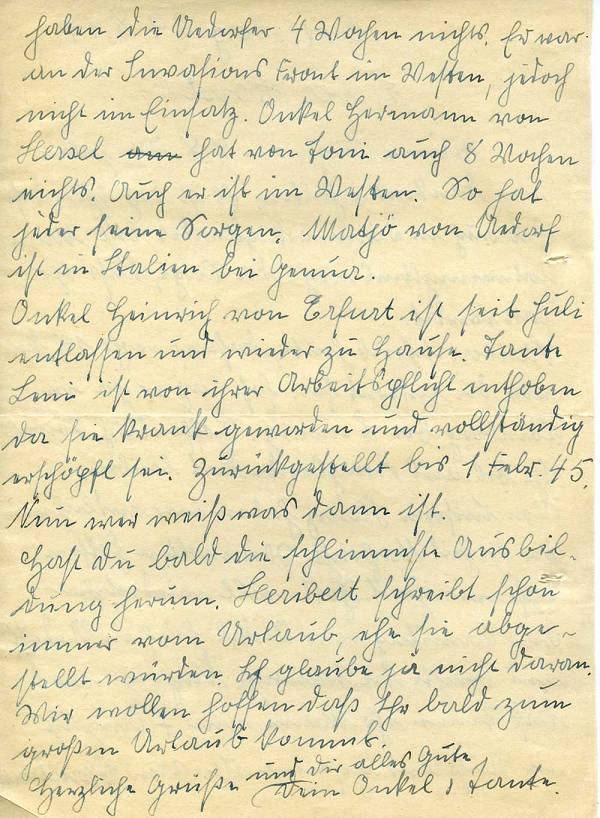 haben die Uedorfer 4 Wochen nichts. Er war
an der Invasions Front im Westen, jedoch
nicht im Einsatz. Onkel Hermann von
Hersel hat von Toni auch 8 Wochen
nichts. Auch er ist im Westen. So hat
jeder seine Sorgen. Matjö von Uedorf
ist in Italien bei Genua.
Onkel Heinrich von Erfurt ist seit Juli
entlassen und wieder zu Hause. Tante
Leni ist von ihrer Arbeitspflicht enthoben
da sie krank geworden und vollständig
erschöpft sei. Zurückgestellt bis 1 Febr. 45.
Nun wer weiß was dann ist.
Hast Du bald die schlimmste Ausbil-
dung herum. Heribert schreibt schon
immer vom Urlaub, ehe sie abge-
stellt würden. Ich glaube ja nicht daran.
Wir wollen hoffen daß Ihr bald zum
großen Urlaub kommt.
Herzliche Grüße und dir alles Gute
Dein Onkel & Tante.